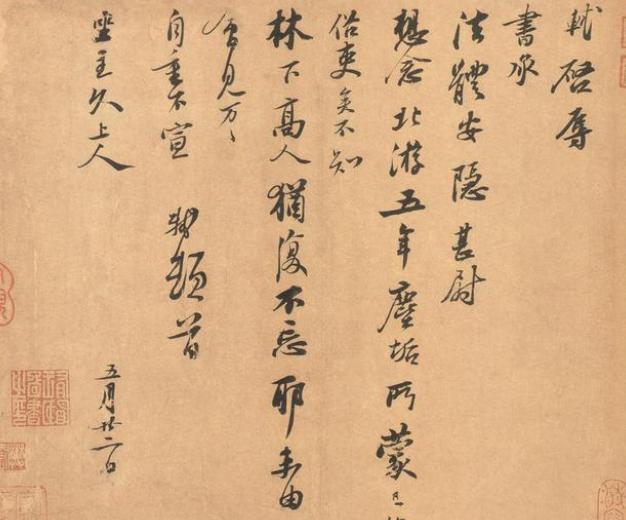 軾啓辱
書承
法體安隱甚尉
想念北游五年塵垢所蒙已
俗吏矣不知
林下高人猶復不忘耶未由
會見万々
自重不宣 軾頓首
坐主久上人
五月廿二日